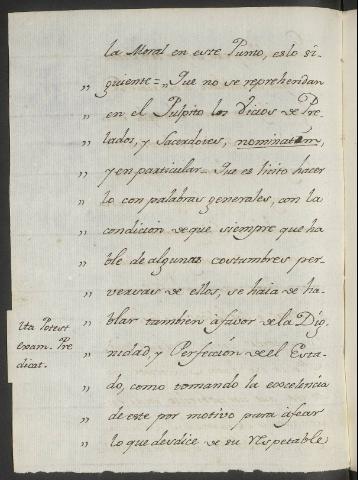 la Moral en este Punto, es lo si-
„ guiente = „ Que no se reprehendan
„ en el Pulpito los Vicios de Pre-
„ lados, y Sacerdotes, nominatim,
„ y en particular = Que es licito hacer
„ lo con palabras generales, con la
„ condición de que siempre que ha
„ ble de algunas costumbres per-
„ versas de ellos, se haia de ha-
„ blar tambien à favor de la Dig-
„ nidad, y Perfección de el Esta-
„ do, como tomando la excelencia
„ de este por motivo para afear
„ lo que desdice de su respetable
Ita Potest.
exam. Pre
dicat.